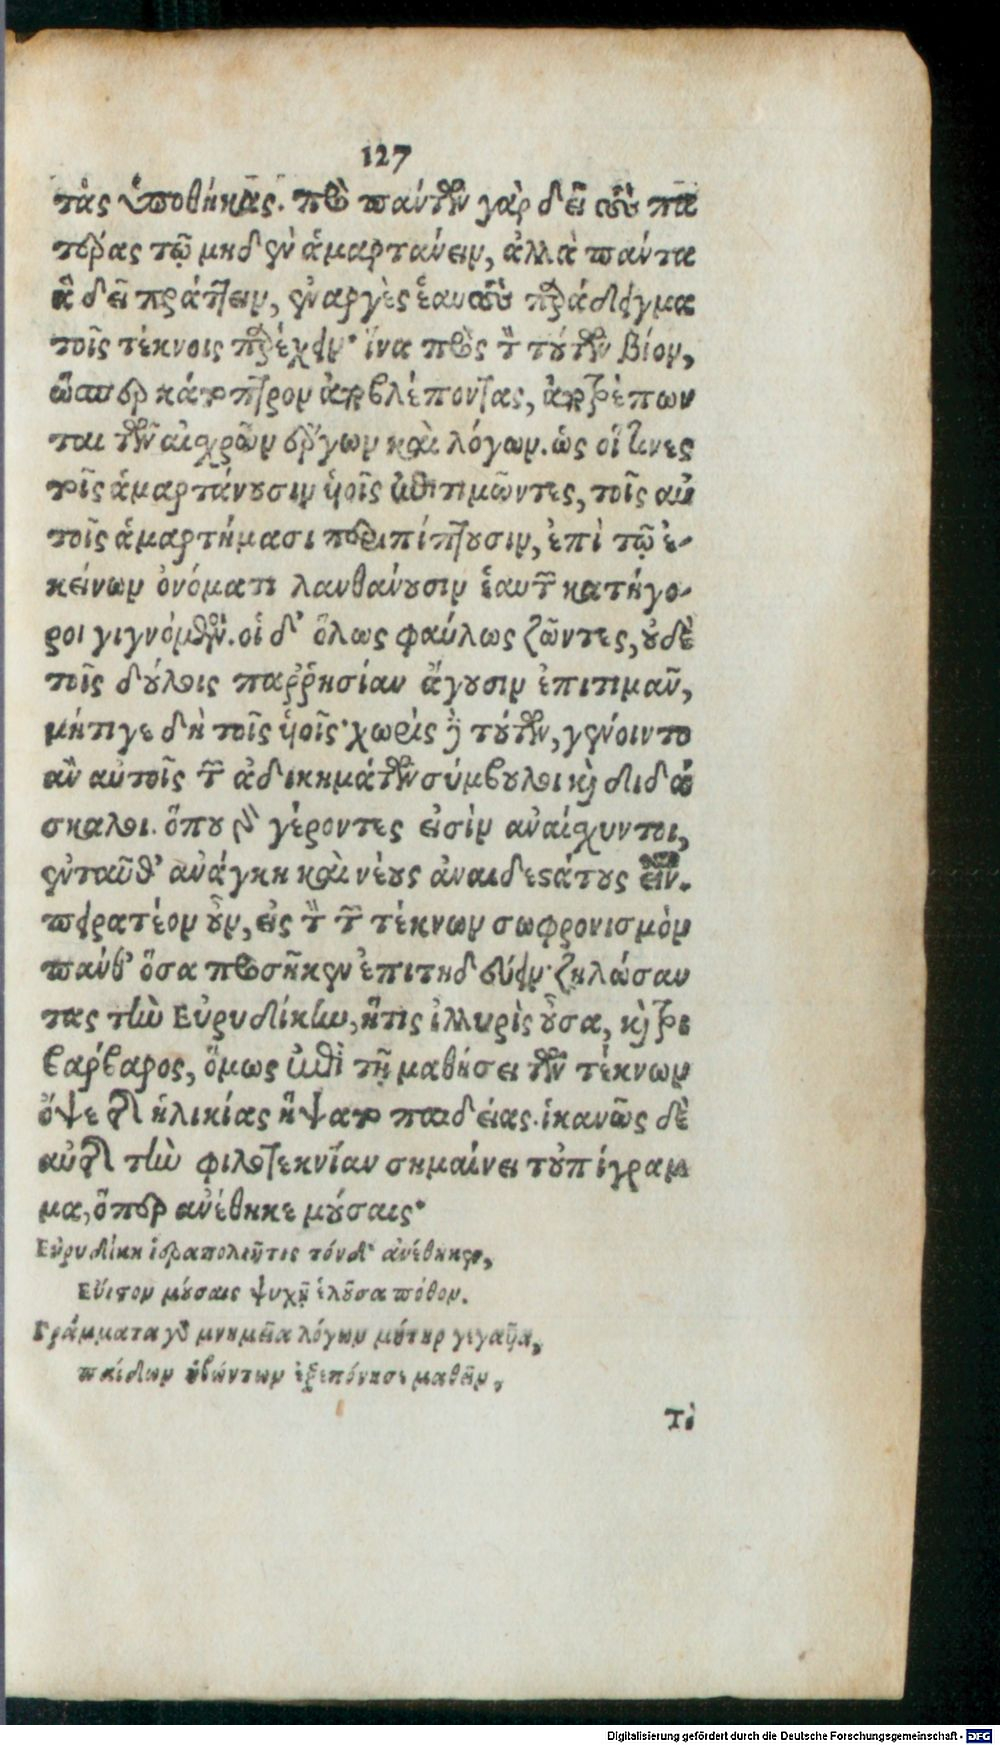 127
τὰς ὑποθήκας. πρὸ πάντων γὰρ δεῖ τοὺς πα
τέρας τῷ μηδὲν ἁμαρτάνειν, ἀλλὰ πάντα
ἃ δεῖ πράττειν, ἐναργὲς ἑαυτοὺς παράδειγμα
τοῖς τέκνοις παρέχειν· ἵνα πρὸς τὸν τούτων βίον,
ὥσπερ κάτοπτρον ἀποβλέποντας, ἀποτρέπων
ται τῶν αἰσχρῶν ἔργων καὶ λόγων. ὡς οἵτινες
τοῖς ἁμαρτάνουσιν υἱοῖς ἐπιτιμῶντες, τοῖς αὐ
τοῖς ἁμαρτήμασι περιπίπτουσιν, ἐπὶ τῷ ἐ-
κείνων ὀνόματι λανθάνουσιν ἑαυτῶν κατήγο-
ροι γιγνόμενοι. οἱ δ' ὅλως φαύλως ζῶντες, οὐδὲ
τοῖς δούλοις παῤῥησίαν ἄγουσιν ἐπιτιμᾶν,
μήτιγε δὴ τοῖς υἱοῖς· χωρὶς δὲ τούτων, γένοιντο
ἂν αὐτοῖς τῶν ἀδικημάτων σύμβουλοι καὶ διδά
σκαλοι. ὅπου γὰρ γέροντες εἰσὶν ἀναίσχυντοι,
ἐνταῦθ' ἀνάγκη καὶ νέους ἀναιδεστάτους εἶναι.
πειρατέον οὖν, εἰς τὸν τῶν τέκνων σωφρονισμὸν
πάνθ' ὅσα προσῆκεν ἐπιτηδεύειν· ζηλώσαν
τας τὴν Εὐρυδίκην, ἥτις ἰλλυρὶς οὖσα, καὶ τρι
βάρβαρος, ὅμως ἐπὶ τῇ μαθήσει τῶν τέκνων
ὀψὲ τῆς ἡλικίας ἥψατο παιδείας. ἱκανῶς δὲ
αὐτῆς τὴν φιλοτεκνίαν σημαίνει τοὐπίγραμ
μα, ὅπερ ἀνέθηκε μούσαις·
Εὐρυδίκη ἱεραπολιῆτις τόνδ' ἀνέθηκε,
Εὔιστον μούσαις ψυχῇ ἑλοῦσα πόθον.
Γράμματα γὰρ μνημεῖα λόγων μήτηρ γεγαυῖα,
παίδων ἡβώντων ἐξεπόνησε μαθεῖν,
Τὶ
Digitalisierung gefördert durch die Deutsche Forschungsgemeinschaft - DFG